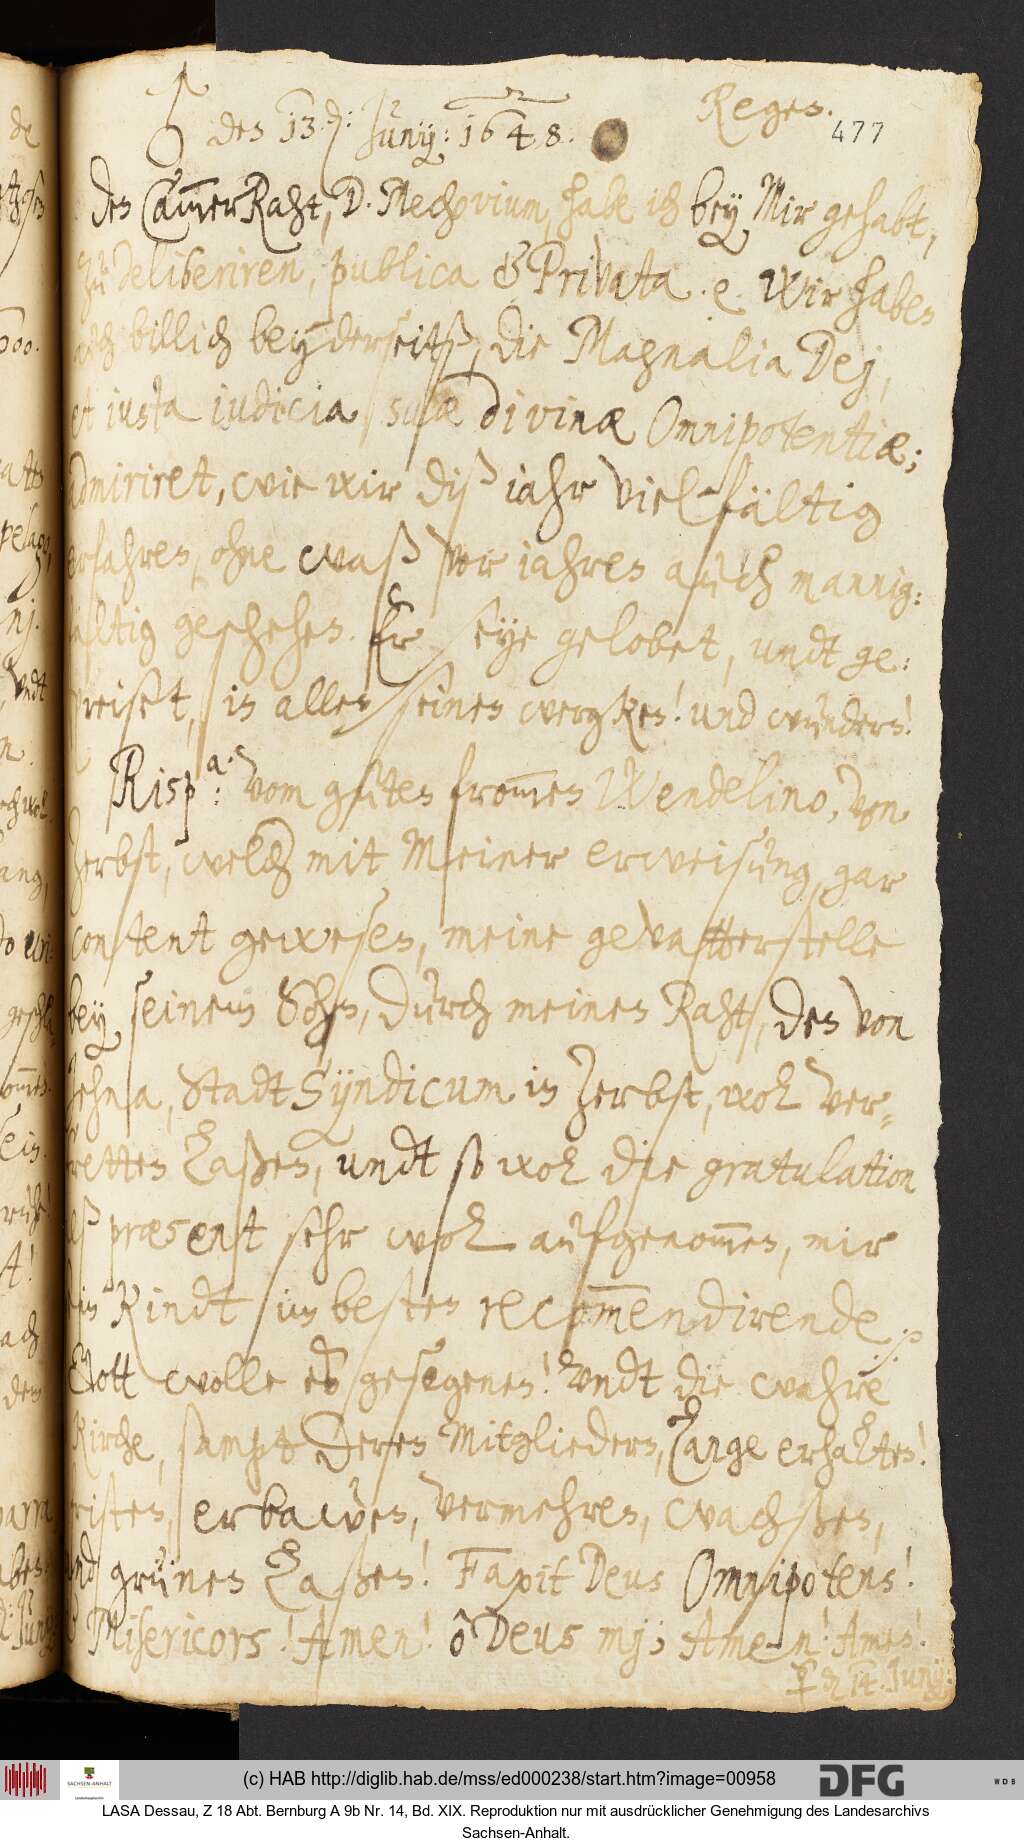 ♂ den 13.d: Junÿ: 1648. Regen.
477
Den CammerRaht, D. Mechovium, habe ich beÿ Mir gehabt,
zu deliberiren, publica & Privata. e Wir haben
auch billich beÿderseitß, die Magnalia Dej,
et iusta iudicia suæ divinæ Omnipotentiæ;
admiriret, wie wir diß iahr vielfältig
erfahren, ohne waß vor iahren auch mannig:
fältig geschehen. Er seye gelobet, undt ge:
preiset, in allen seinen wergken! und wundern!
Rispa: vom guten frommen Wendelino, von
Zerbst, welch mit Meiner erweisung, gar
content gewesen, meine gevatterstelle
beÿ seinem Sohn, durch meinen Raht, den von
Jehna, Stadt Sÿndicum in Zerbst, wol ver=
tretten laßen, undt so wol die gratulation
alß præsent sehr wol aufgenommen, mir
sein Kindt im besten recommendirende ./.
Gott wolle es gesegenen! Undt die wahre
Kirche, sampt deren Mitgliedern, lange erhalten!
fristen, erbawen, vermehren, wachßen,
und grünen laßen! Faxit Deus Omnipotens!
& Misericors! Amen! ô Deus mj; Amen! Amen!
♀ den 14. Junÿ:
(c) HAB http://diglib.hab.de/mss/ed000238/start.htm?image=00958
DFG
WDB
SACHSEN-ANHALT
LASA Dessau, Z 18 Abt. Bernburg A 9b Nr. 14, Bd. XIX. Reproduktion nur mit ausdrücklicher Genehmigung des Landesarchivs
Sachsen-Anhalt.